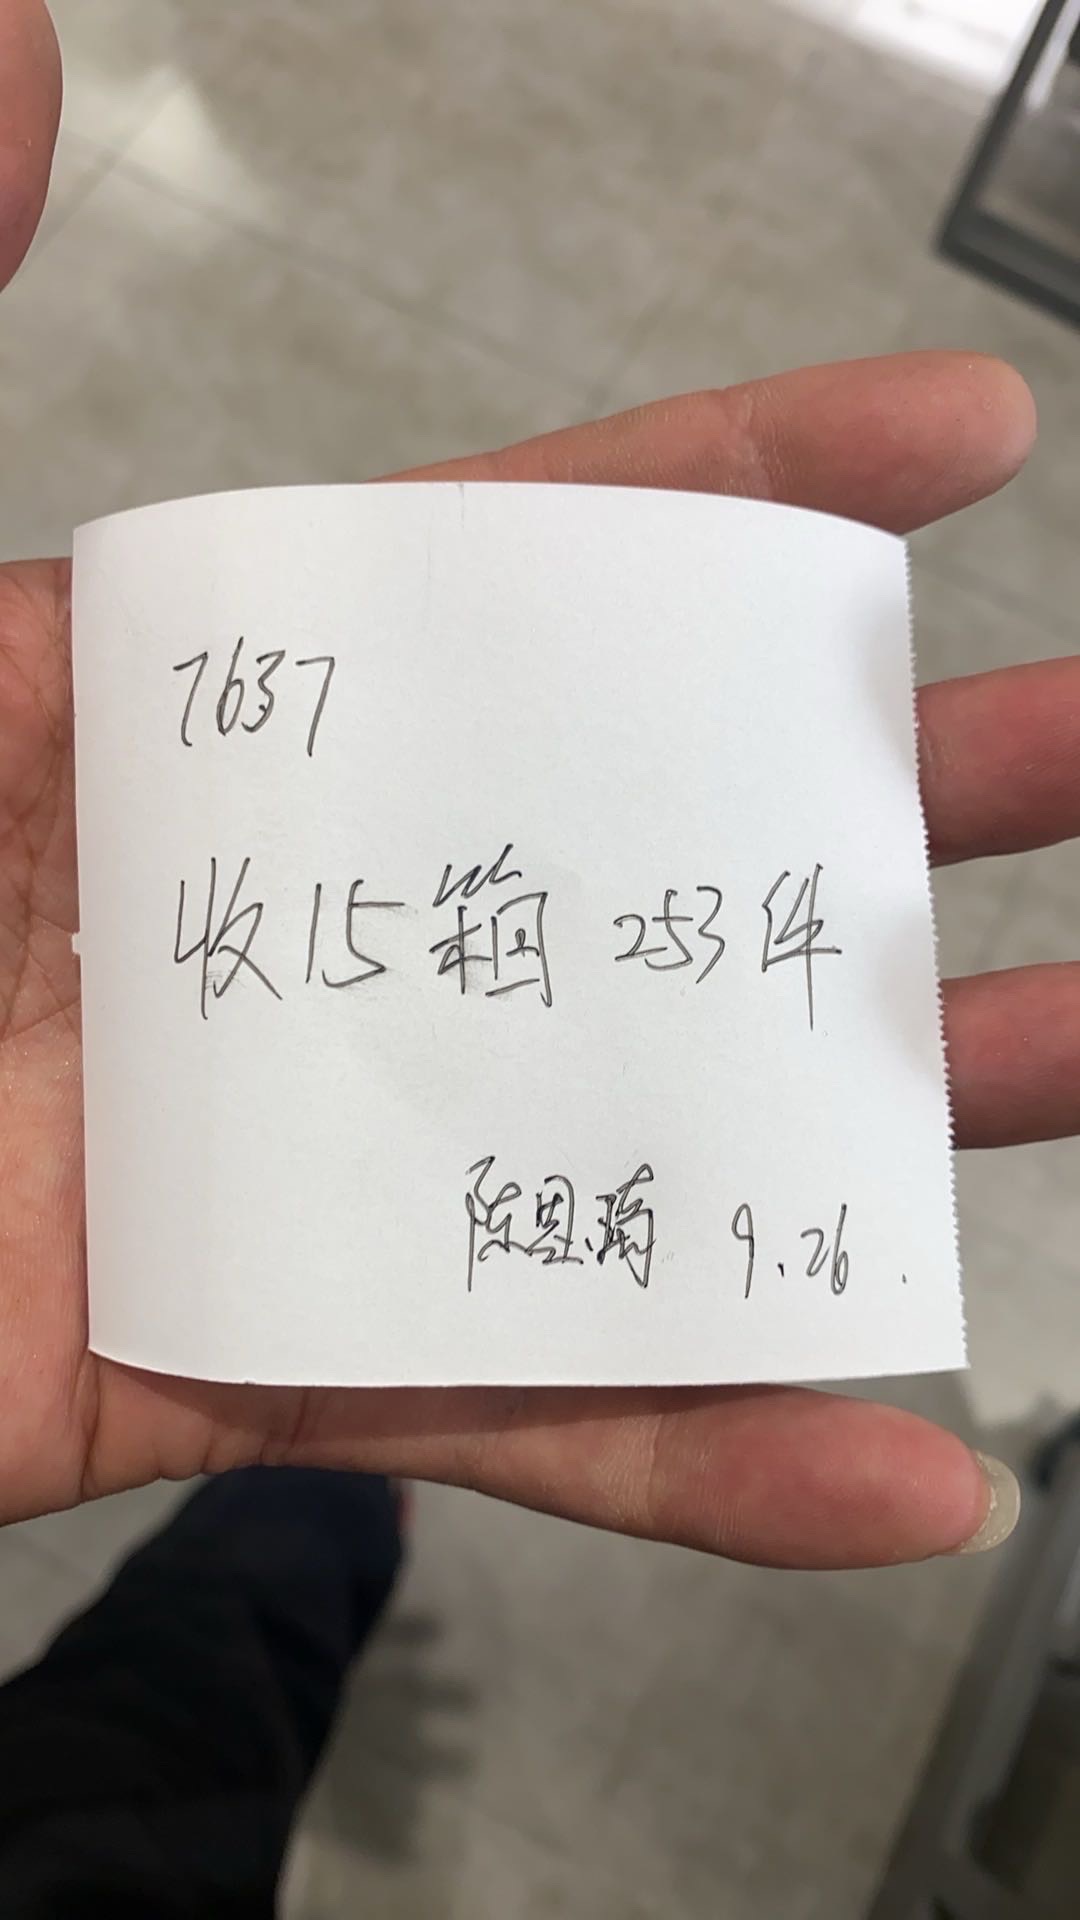 7637
收15箱 253件
陈恩琦 9.26.